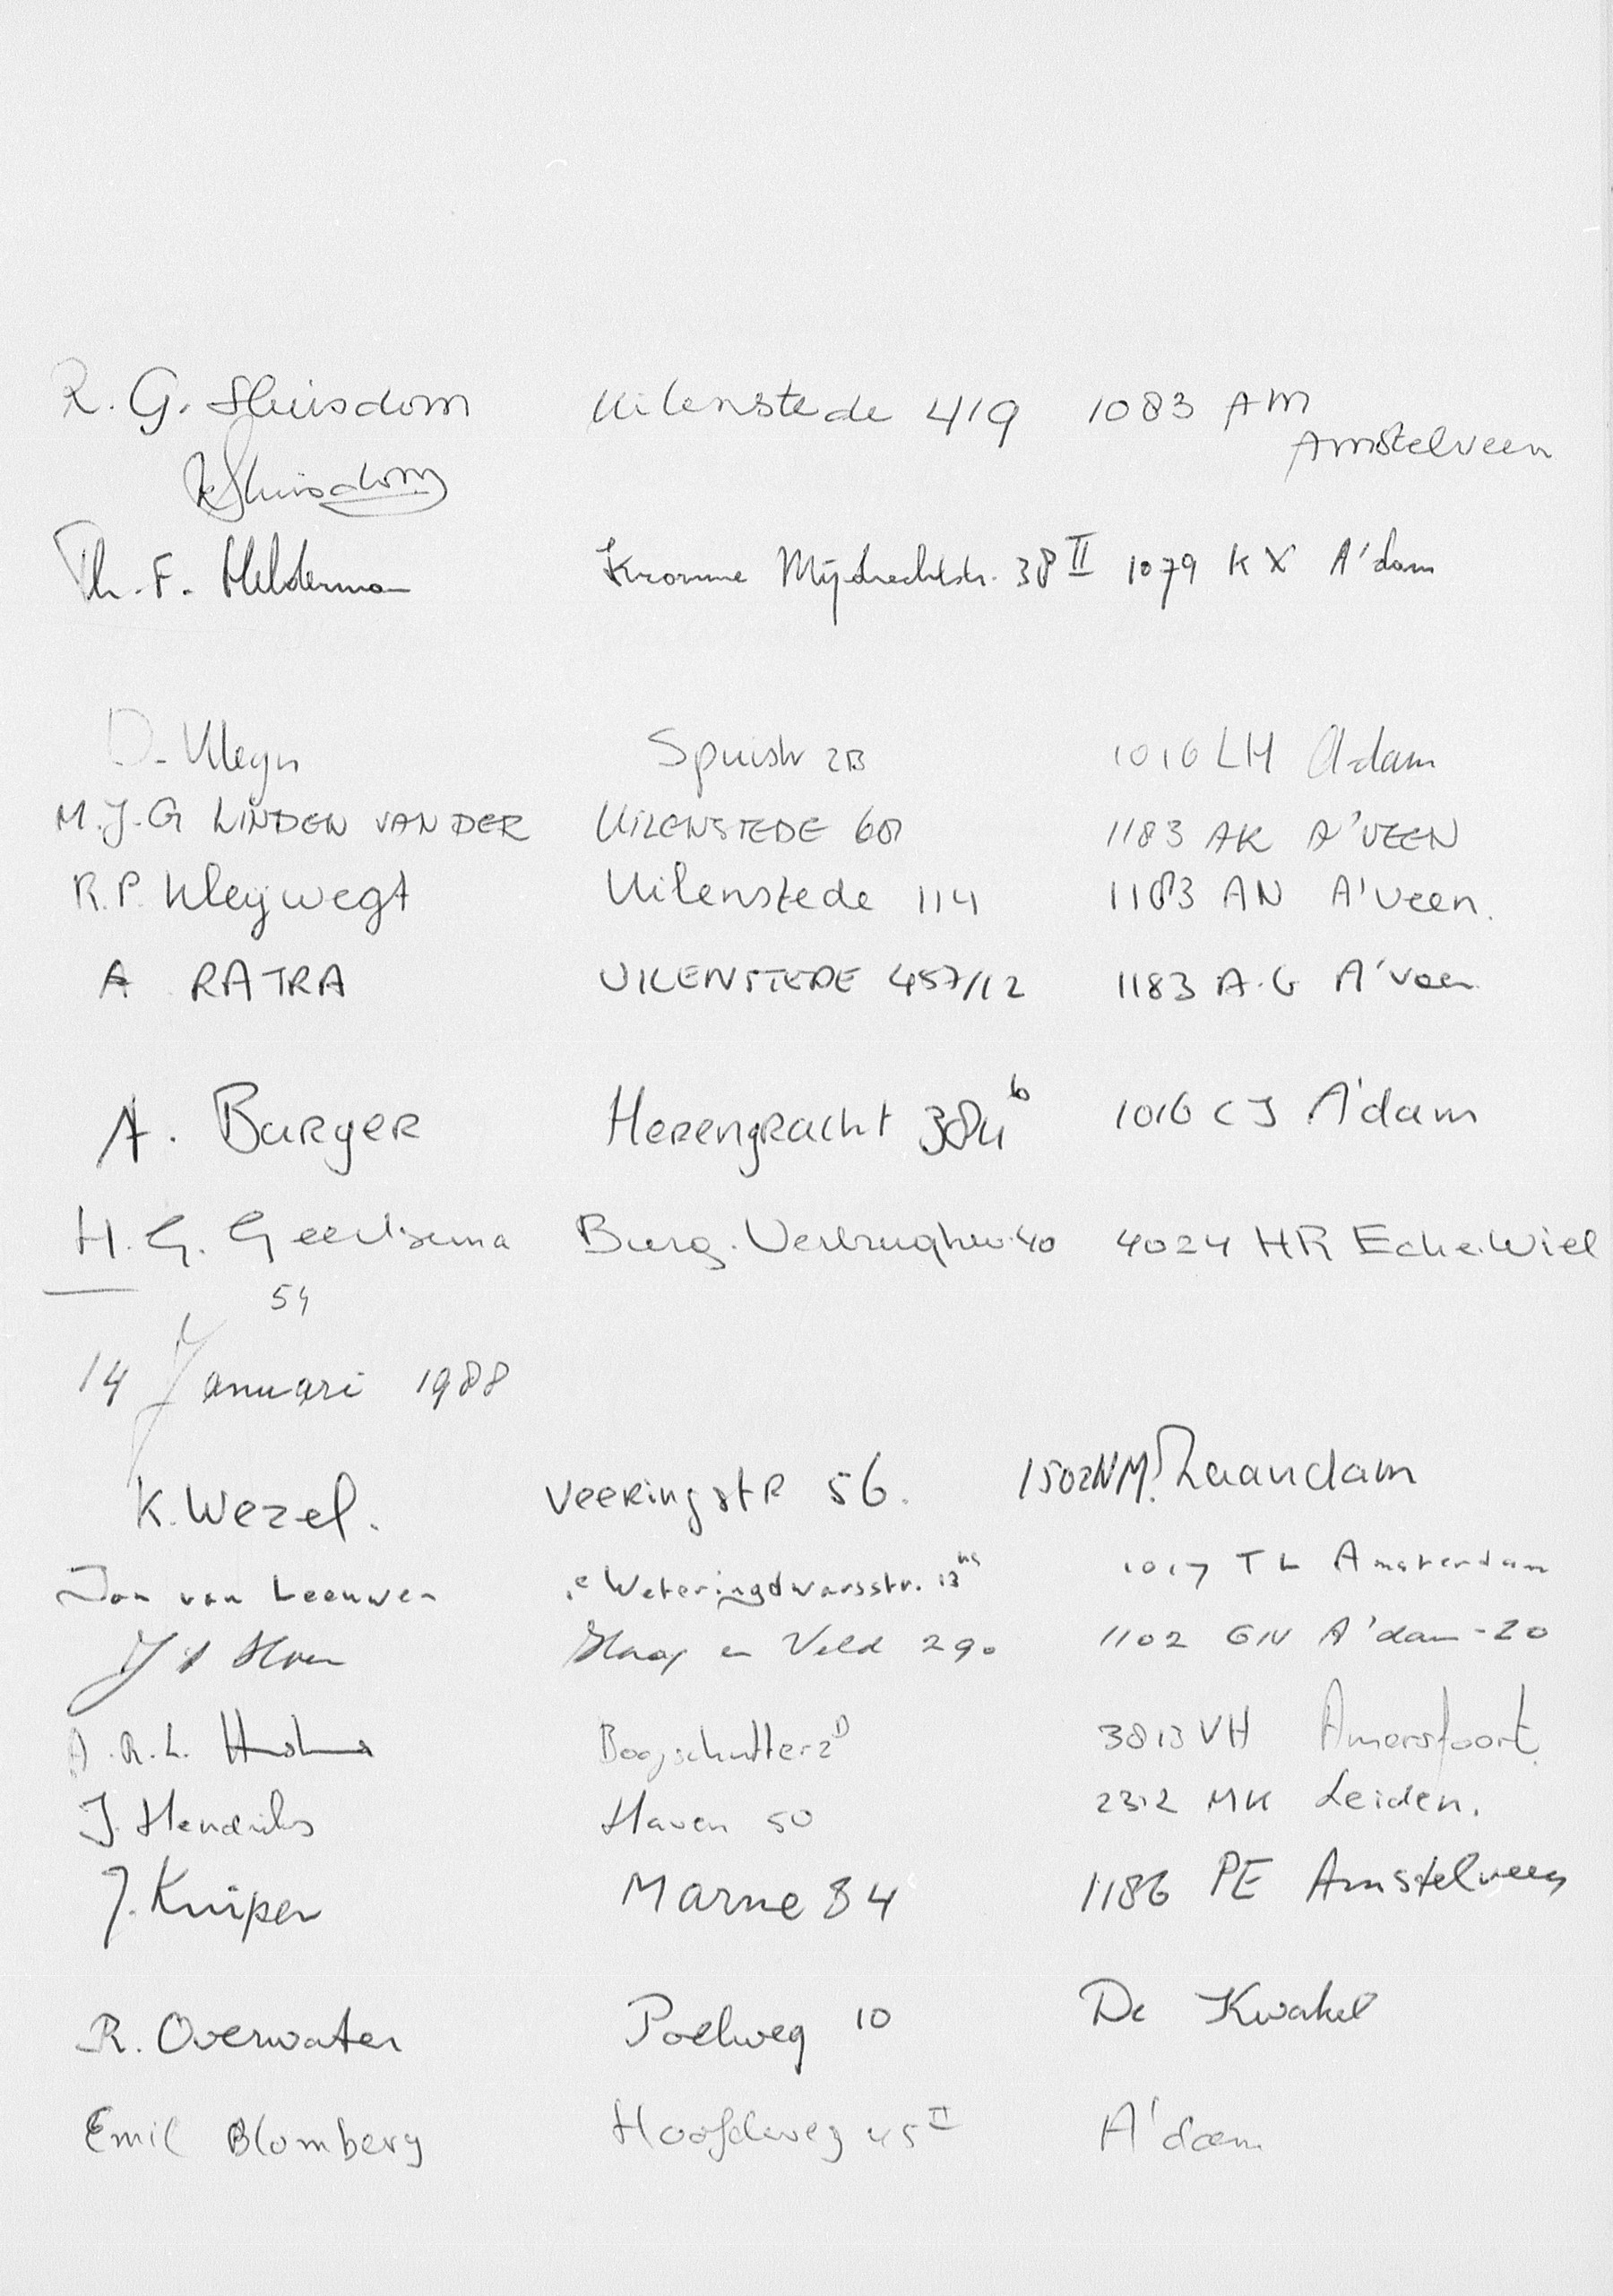 R. G. Sluisdom Uilenstede 419 1083 AM
Amstelveen
RSluisdom
Th. F. Helderman Kromme Mijdrechtstr. 38 II 1079 KX A'dam
D. Kleyn Spuistr 2B 1016 LH A'dam
M.J.G LINDEN VAN DER UILENSTEDE 60 1183 AK A'VEEN
R.P. Kleywegt Uilenstede 114 1183 AN A'veen.
A RATRA UILENSTEDE 457/12 1183 A.G A'veen
A. Burger Herengracht 384 b 1016 CJ A'dam
H. G. Geertsema Burg. Verbrughw. 40 4024 HR Eck e. Wiel
54
14 Januari 1988
K. Wezel. Veeringstr 56. 1502NM. Zaandam
Jan van Leeuwen e Weteringdwarsstr. 13 hs 1017 TL Amsterdam
Haag en Veld 290 1102 GN A'dam-20
A.R.L. Boogschutter 2 D 3813 VH Amersfoort.
J. Hendriks Haven 50 2312 MK Leiden.
J. Kuiper Marne 84 1186 PE Amstelveen
R. Overwater Poelweg 10 De Kwakel
Emil Blomberg Hoofdweg 45 II A'dam